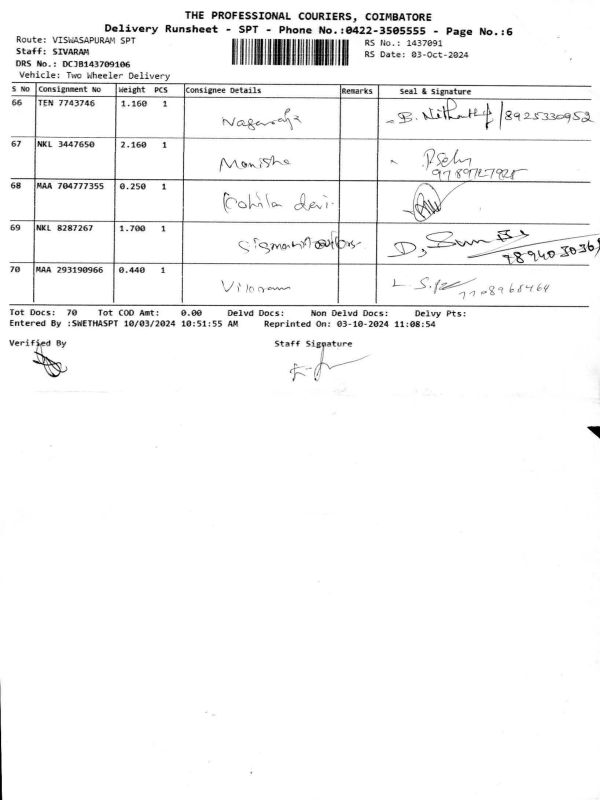 THE PROFESSIONAL COURIERS, COIMBATORE
Delivery Runsheet - SPT - Phone No.:0422-3505555 - Page No.:6
Route: VISWASAPURAM SPT
RS No.: 1437091
Staff: SIVARAM
RS Date: 03-Oct-2024
DRS No.: DCJB143709106
Vehicle: Two Wheeler Delivery
S No Consignment No Weight PCS Consignee Details Remarks Seal & Signature
66 TEN 7743746 1.160 1 Nagaraja B. 8925330952
67 NKL 3447650 2.160 1 Monisha
68 MAA 704777355 0.250 1 Kohila devi
69 NKL 8287267 1.700 1
70 MAA 293190966 0.440 1
Tot Docs: 70 Tot COD Amt: 0.00 Delvd Docs: Non Delvd Docs: Delvy Pts:
Entered By :SWETHASPT 10/03/2024 10:51:55 AM Reprinted On: 03-10-2024 11:08:54
Verified By Staff Signature